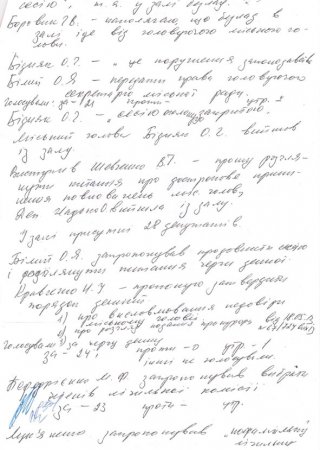 сесію", т. я. у залі
Боровик Г.В. - наполягаю, що булад в
залі іде від головуючого міського го-
лови.
Бізняк О.Г. - „це порушення законодавства
Білий О.Я - передати права головуючого
секретарю міської ради.
Голосували: за - 21 проти - утр. 2
Бізняк О.Г. - „сесію оголошую закритою.
Міський голова Бізняк О.Г. вийшов
із залу.
Виступив Шевченко В.Г. - прошу розгля-
нути питання про дострокове припи-
нення повноважень міс. голови,
Деп вийшла із залу.
У залі присутні 28 депутатів.
Білий О.Я. запропонував продовжити сесію
і розглянути питання черги денної
Кравченко Н.У - пропоную затвердити
порядок денний
1) про висловлювання недовіри
міському голові
2) про розгляд подання прокурора від 18.05.13
Голосували за чергу денну
за - 24, проти - 0 утр. - 1
інші не голосували.
М.Ф. запропонував вибрати
членів лічильної комісії
за - 23 проти - утр.
запропонував